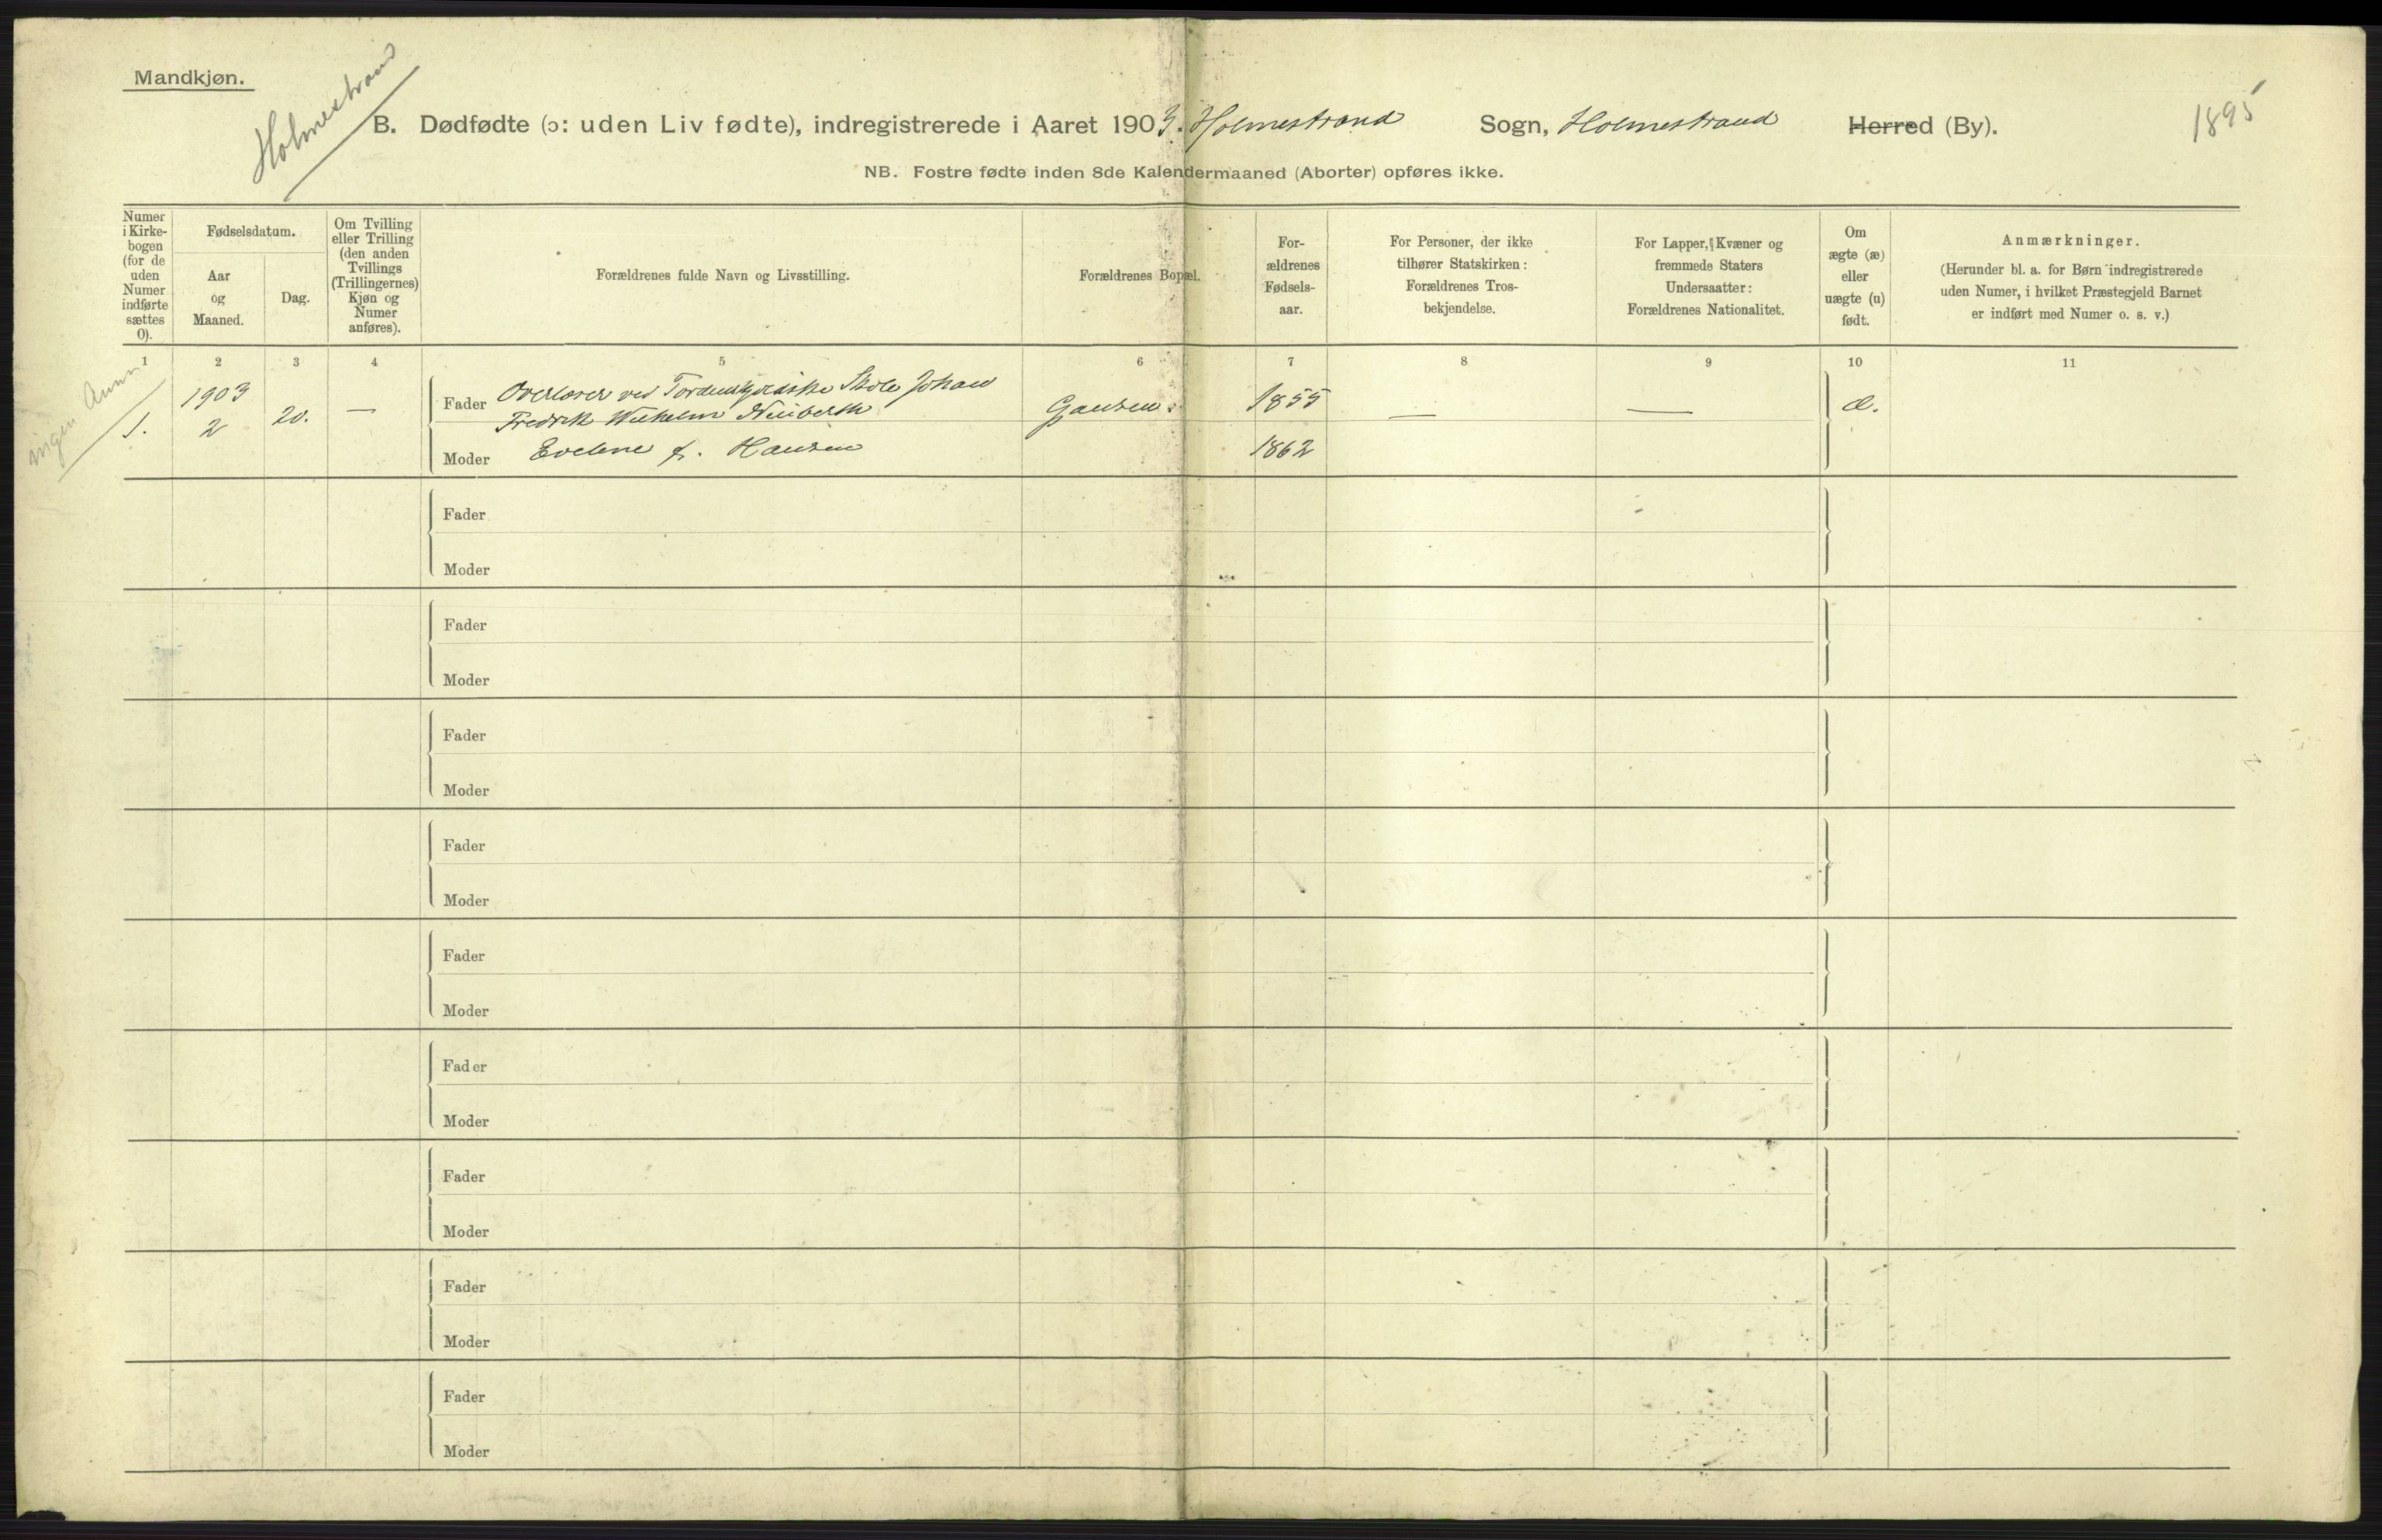 Mandkjøn.
Holmestrand
1895
B. Dødfødte (ɔ: uden Liv fødte), indregistrerede i Aaret 1903. Holmestrand Sogn, Holmestrand Herred (By).
NB. Fostre fødte inden 8de Kalendermaaned (Aborter) opføres ikke.
Numer
i Kirke-
bogen
(for de
uden
Numer
indførte
sættes
0).
Fødselsdatum.
Aar
og
Maaned.
Dag.
Om Tvilling
eller Trilling
(den anden
Tvillings
(Trillingernes)
Kjøn og
Numer
anføres).
Forældrenes fulde Navn og Livsstilling.
Forældrenes Bopæl.
For-
ældrenes
Fødsels-
aar.
For Personer, der ikke
tilhører Statskirken:
Forældrenes Tros-
bekjendelse.
For Lapper, Kvæner og
fremmede Staters
Undersaatter:
Forældrenes Nationalitet.
Om
ægte (æ)
eller
uægte (u)
født.
Anmærkninger.
(Herunder bl. a. for Børn indregistrerede
uden Numer, i hvilket Præstegjeld Barnet
er indført med Numer o. s. v.)
1 2 3 4 5 6 7 8 9 10 11
ingen Anm
1. 1903 2 20. —
Fader Overlærer ved Tordenskjoldske Skole Johan
Fredrik Wilhelm
Gausen. 1855 — — æ.
Moder Evelene f. Hansen 1862
Fader
Moder
Fader
Moder
Fader
Moder
Fader
Moder
Fader
Moder
Fader
Moder
Fader
Moder
Fader
Moder
Fader
Moder